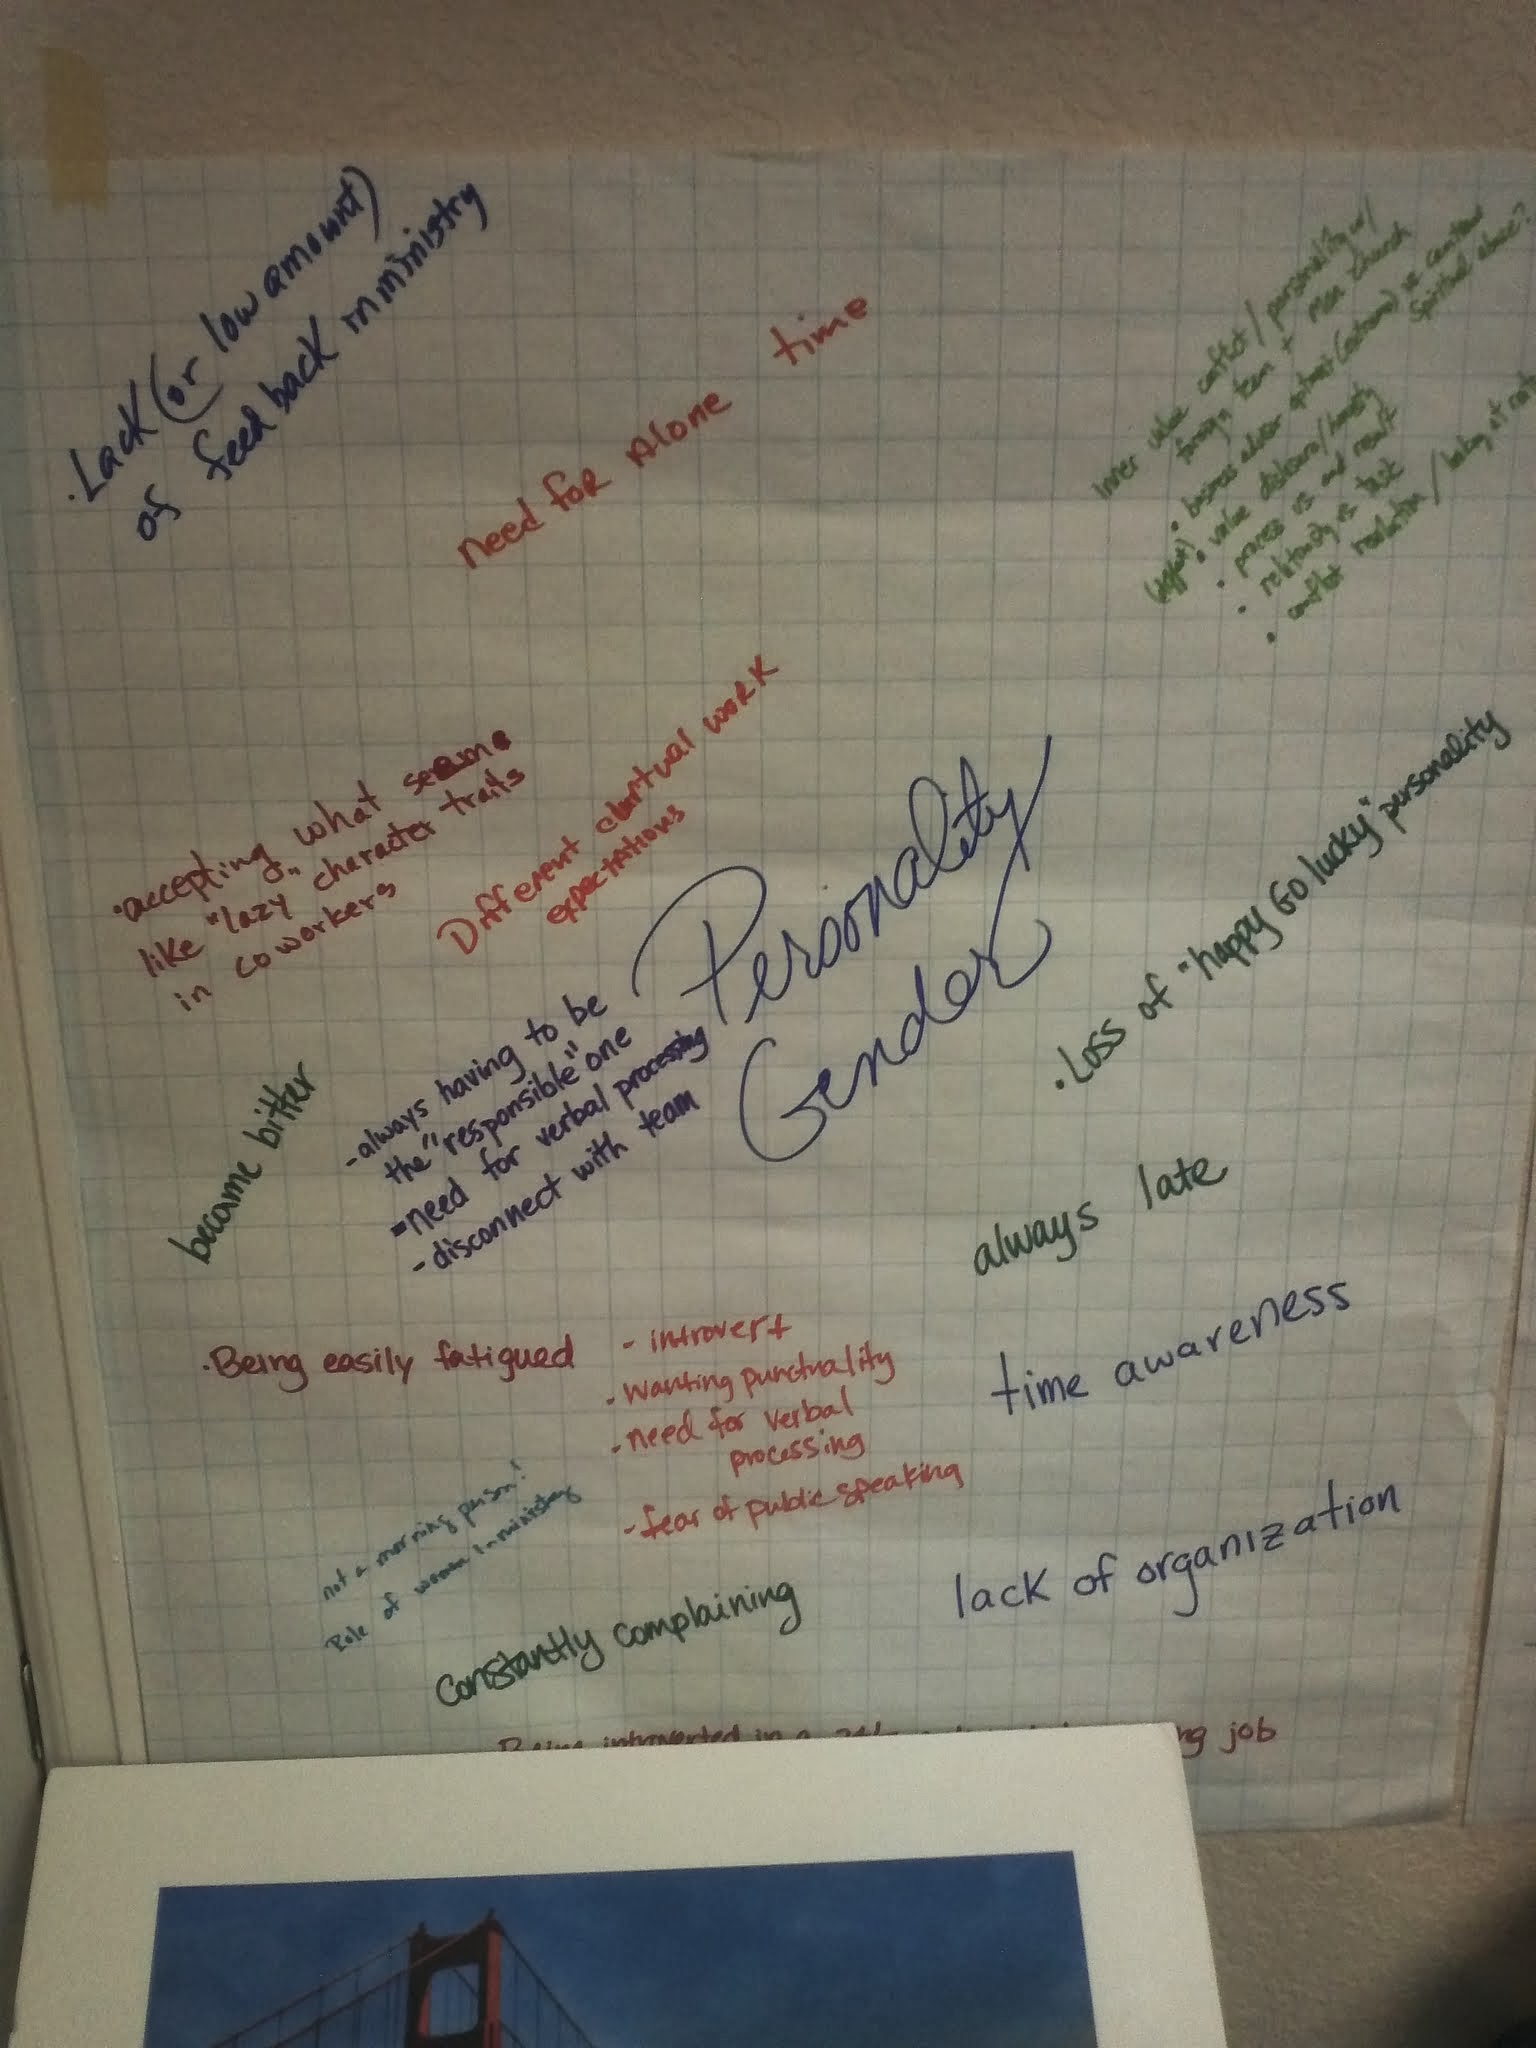 • Lack (or low amount)
of feedback in ministry
need for Alone time
inner value conflict / personality w/
foreign team + Men church
• business advisor vs
• value
• process vs end result
• relationship vs task
• conflict resolution /
spiritual abuse?
• accepting what seems
like "lazy" character traits
in coworkers
Different clurtual work
expectations
Personality/
Gender
• Loss of "happy Go lucky" personality
- always having to be
the "responsible" one
- need for verbal processing
- disconnect with team
became bitter
always late
• Being easily fatigued
- introvert
• wanting punctuality
• need for verbal
processing
- fear of public speaking
time awareness
not a morning person!
Role of women in ministry
lack of organization
constantly complaining
Being introverted in a
job